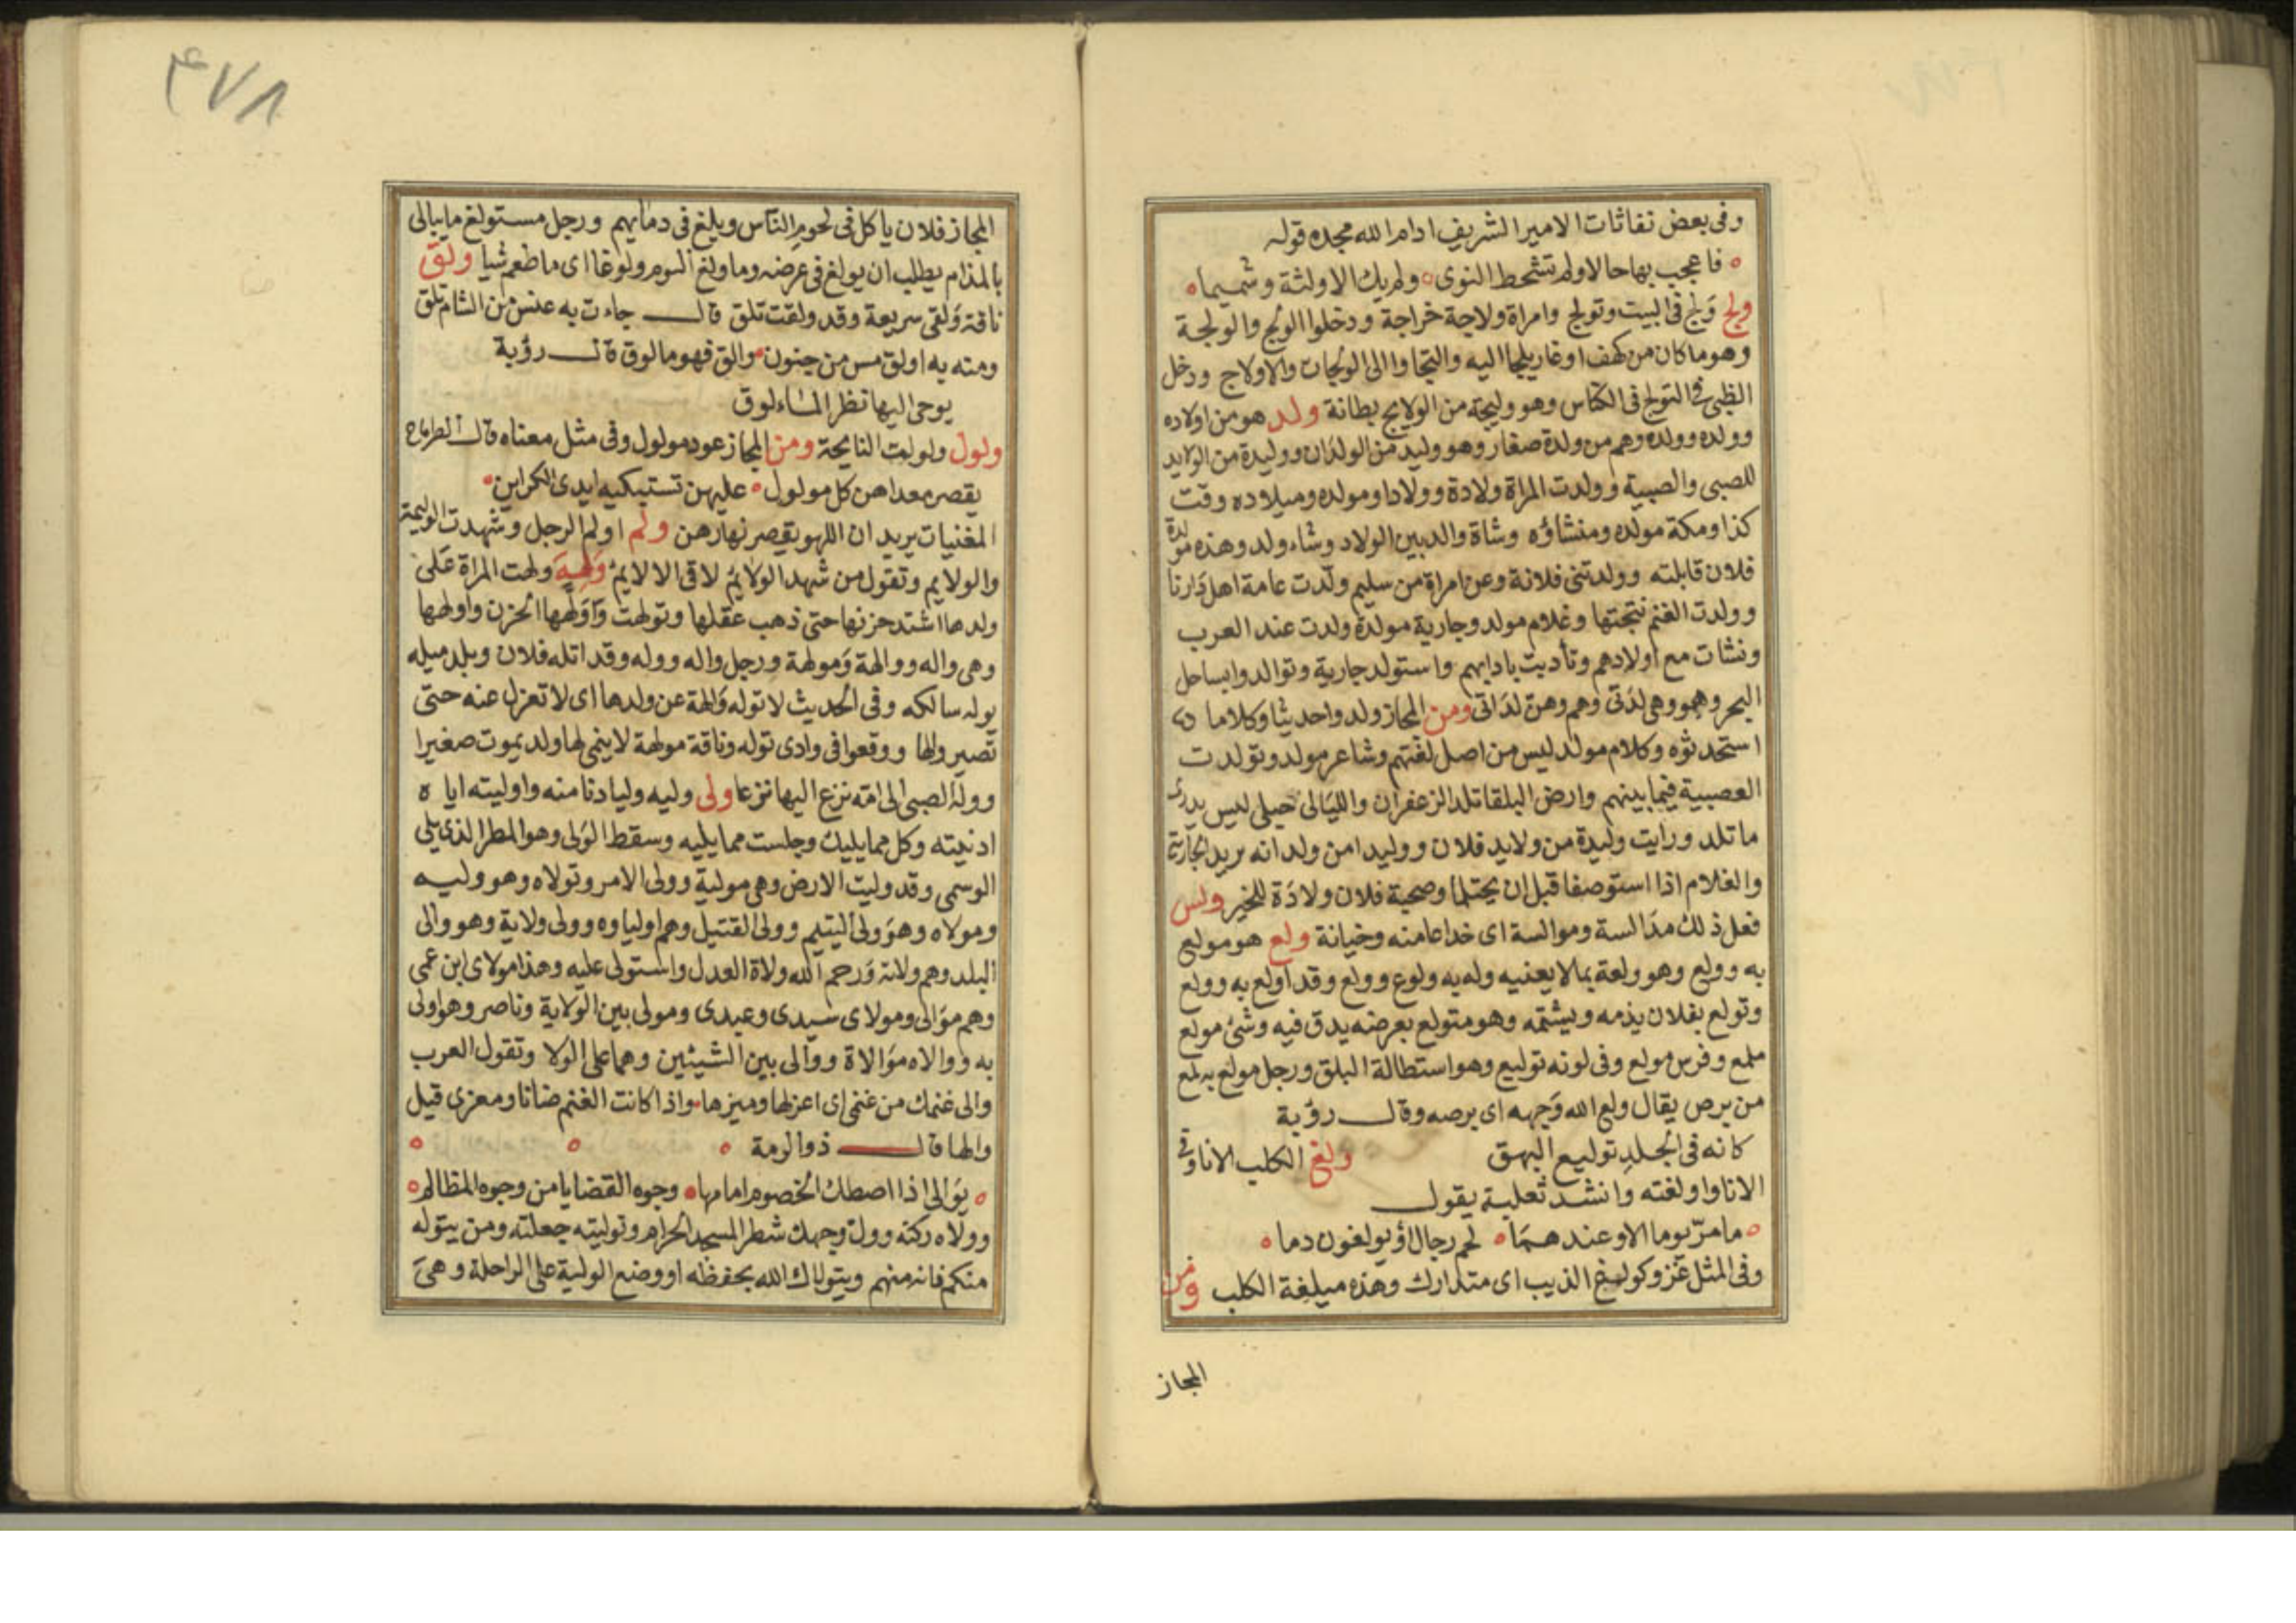 وفى بعض نفاثات الامير الشريف ادام الله مجده قوله
فاعجب بها حالا ولم تشحط النوى ولم يك الا ولثة وشميما
ولج وَلج فى البيت وتولج وامراة ولاجة خراجة ودخلوا الولج والولجة
وهو ما كان من كهف او غار يلجا اليه والتجاوا الى الولجات والاولاج ودخل
الظبى فى التولج فى الكناس وهو وليجته من الولايج بطانة ولد هو من اولاده
وولده وولده وهم من ولدة صغار وهو وليد من الولدان ووليدة من الولايد
للصبى والصبية وولدت المراة ولادة وولادا ومولده وميلاده وقت
كذا ومكة مولده ومنشاؤه وشاة والد بين الولاد وشاء ولد وهذه مولدة
فلان قابلته وولدتنى فلانة وعن امراة من سليم ولّدت عامة اهل دارنا
وولدت الغنم نتجتها وغلام مولد وجارية مولدة ولدت عند العرب
ونشات مع اولادهم وتأدبت بادابهم واستولد جارية وتوالدوا بساحل
البحر وهو وهى لدَتى وهم وهنّ لدَاتى ومن المجاز ولدوا حديثا وكلاما
استحدثوه وكلام مولد ليس من اصل لغتهم وشاعر مولد وتولدت
العصبية فيما بينهم وارض البلقا تلد الزعفران والليالى حبلى ليس يدرى
ما تلد ورايت وليدة من ولايد فلان ووليدا من ولدانه يريد الجارية
والغلام اذا استوصفا قبل ان يحتلما وصحبة فلان ولادَة للخير ولس
فعل ذلك مدَالسة وموالسة اى خداعا منه وخيانة ولع هو مولع
به وولع وهو ولعة بما لا يعنيه وله به ولوع وولع وقد اولع به وولع
وتولع بفلان يذمه ويشتمه وهو متولع بعرضه يدق فيه وشئ مولع
ملمع وفرس مولع وفى لونه توليع وهو استطالة البلق ورجل مولع به لمع
من برص يقال ولع الله وَجهه اى برصه وقال رؤبة
كانه فى الجلدِ توليع البهق ولغ الكلب الانا وفى
الانا واولغته وانشد ثعلبة يقول
ما مرّ يوما الا وعندهمَا لحم رجال اَو يولغون دما
وفى المثل غزو كولغ الذيب اى متدارك وهذه ميلغة الكلب ومن
المجاز
٤٧٨
المجاز فلان ياكل فى لحوم الناس ويلغ فى دمايهم ورجل مستولغ ما يبالى
بالمذام يطلب ان يولغ فى عرضه وما ولغ اليوم ولوغا اى ما طعم شيا ولق
ناقة وَلقى سريعة وقد ولقت تلق قال جاءت به عنس من الشام تلق
ومنه به اولق مس من جنون والق فهو مالوق قال رؤبة
يوحى اليها نظر الماءلوق
ولول ولولت النايحة ومن المجاز عود مولول وفى مثل معناه قال الطرماح
يقصر مغداهن كل مولول عليهن تستبكيه ايدى الكراين
المغنيات يريد ان اللهو يقصر نهارهن ولم اولم الرجل وشهدت الوليمة
والولايم وتقول من شهد الولايم لاقى الالايم وَلهَ ولهت المراة عَلى
ولدها اشتد حزنها حتى ذهب عقلها وتولهت وَاوَلهها الحزن واولهها
وهى واله ووالهة وَمولهة ورجل واله ووله وقد اتله فلان وبلد ميله
يوله سالكه وفى الحديث لا توله وَالهة عن ولدها اى لا تعزل عنه حتى
تصير والها ووقعوا فى وادى توله وناقة مولهة لا ينمى لها ولد يموت صغيرا
ووله الصبى الى امّه نزع اليها نزعا ولى وليه وليا دنا منه واوليته اياه
ادنيته وكل مما يليك وجلست مما يليه وسقط الوَلى وهو المطر الذى يلى
الوسمى وقد وليت الارض وهى مولية وولى الامر وتولاه وهو وليه
ومولاه وهو وَلى اليتيم وولى القتيل وهم اولياوه وولى ولاية وهو والى
البلد وهم ولاته وَرحم الله ولاة العدل واستولى عليه وهذا مولاى ابن عمى
وهم موَالى ومولاى سيدى وعبدى ومولى بين الوَلاية وناصر وهو اولى
به ووالاه موَالاة ووالى بين الشيئين وهما على الولا وتقول العرب
والى غنمك من غنمى اى اعزلها وميزها واذا كانت الغنم ضانا ومعزى قيل
والها قال ذو الرمة
يوَالى اذا اصطك الخصوم امامها وجوه القضايا من وجوه المظالم
وولاه ركنه وولى وجهك شطر المسجد الحرام وتوليته جعلته ومن يتوله
منكم فانه منهم ويتولاك الله بحفظه او وضع الولية على الراحلة وهىَ